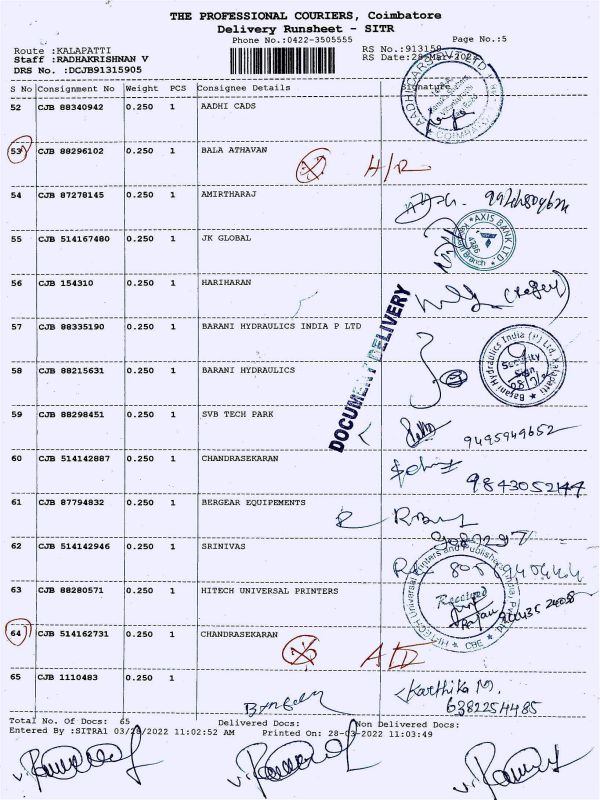 THE PROFESSIONAL COURIERS, Coimbatore
Delivery Runsheet - SITR
Phone No.:0422-3505555
Page No.:5
Route :KALAPATTI
RS No.:913159
Staff :RADHAKRISHNAN V
RS Date:28-Mar-2022
DRS No. :DCJB91315905
S No Consignment No Weight PCS Consignee Details Signature
52 CJB 88340942 0.250 1 AADHI CADS
53 CJB 88296102 0.250 1 BALA ATHAVAN
54 CJB 87278145 0.250 1 AMIRTHARAJ
AXIS BANK LTD
55 CJB 514167480 0.250 1 JK GLOBAL
56 CJB 154310 0.250 1 HARIHARAN
DOCUMENT DELIVERY
57 CJB 88335190 0.250 1 BARANI HYDRAULICS INDIA P LTD
Barani Hydraulics India (P) Ltd, Kalapatti
Security
Sign
58 CJB 88215631 0.250 1 BARANI HYDRAULICS
59 CJB 88298451 0.250 1 SVB TECH PARK
9495949652
60 CJB 514142887 0.250 1 CHANDRASEKARAN
9843052144
61 CJB 87794832 0.250 1 BERGEAR EQUIPEMENTS
62 CJB 514142946 0.250 1 SRINIVAS
63 CJB 88280571 0.250 1 HITECH UNIVERSAL PRINTERS
Received
64 CJB 514162731 0.250 1 CHANDRASEKARAN
65 CJB 1110483 0.250 1
Karthika M.
6382254485
Total No. Of Docs: 65 Delivered Docs: Non Delivered Docs:
Entered By :SITRA1 03/28/2022 11:02:52 AM Printed On: 28-03-2022 11:03:49